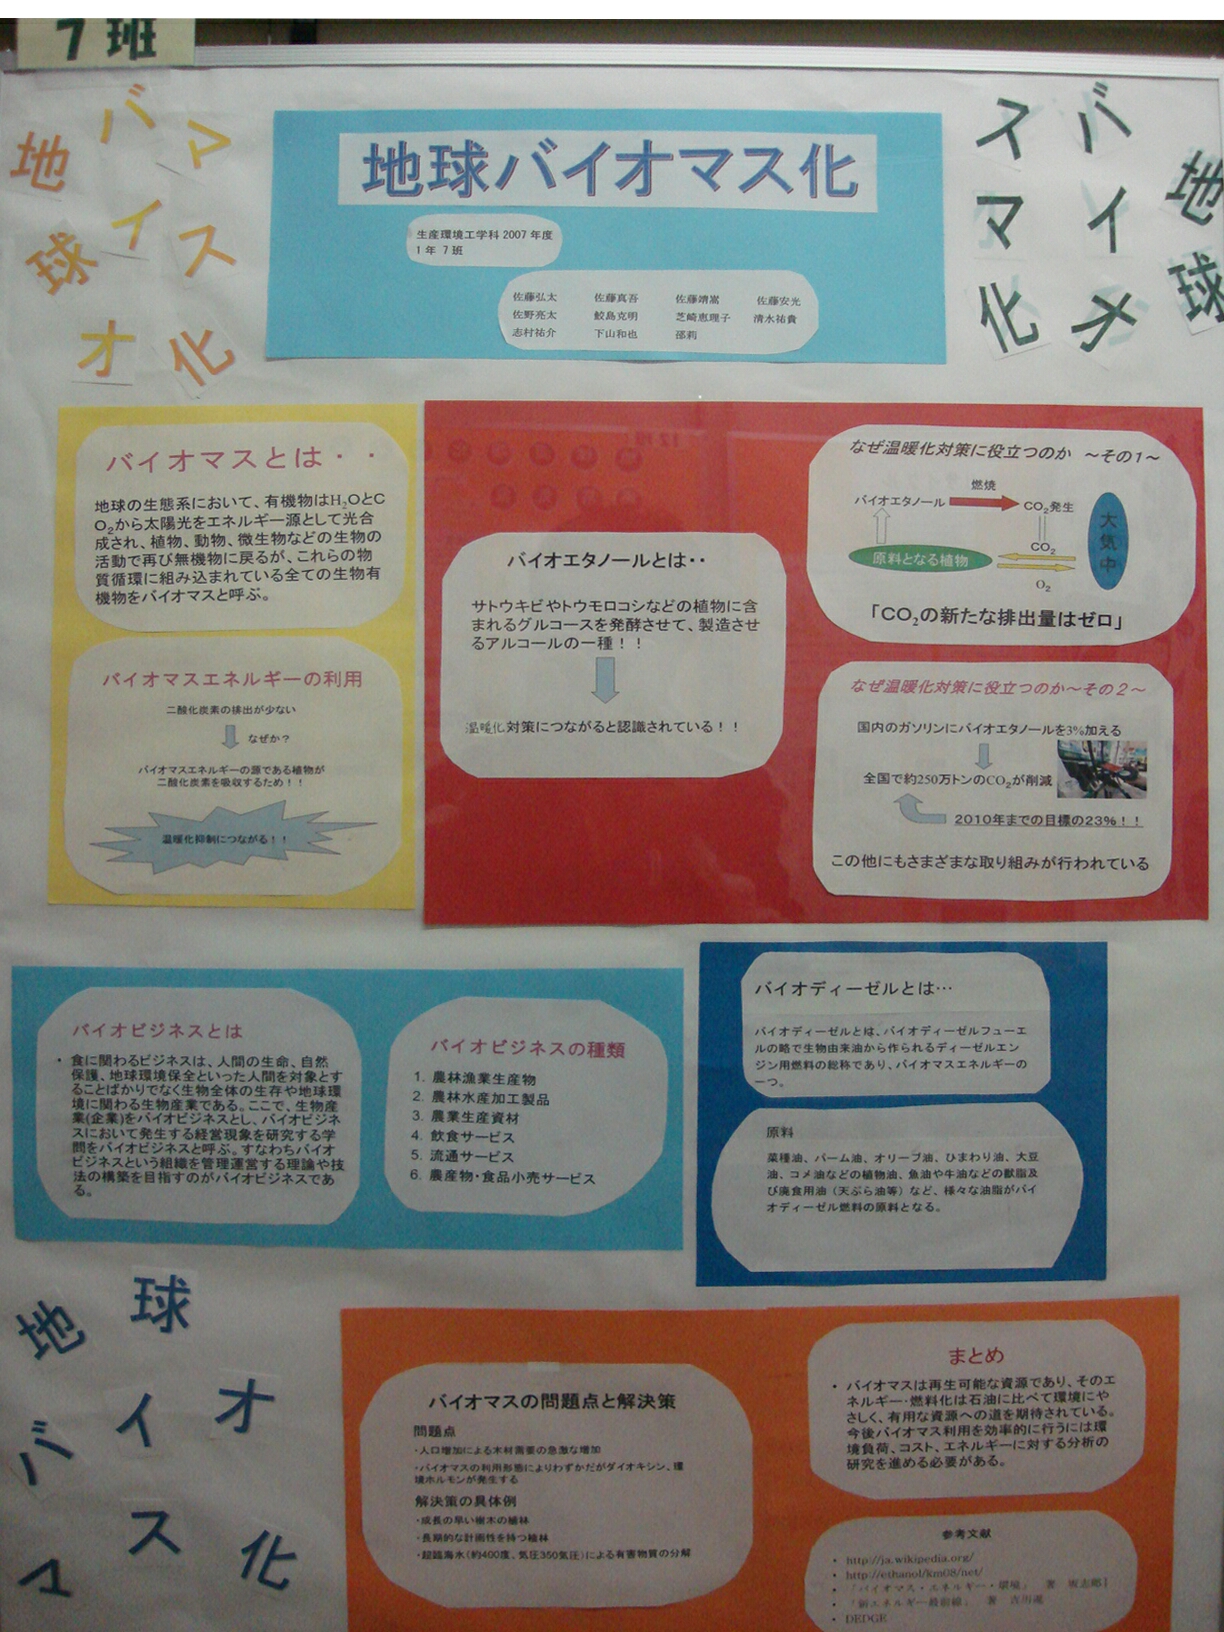 7班
地球バイオマス化
地球バイオマス化
地球バイオマス化
生産環境工学科 2007 年度
1 年 7 班
佐藤弘太 佐藤真吾 佐藤靖嵩 佐藤安光
佐野亮太 鮫島克明 芝崎恵理子 清水祐貴
志村祐介 下山和也 邵莉
バイオマスとは・・
地球の生態系において、有機物はH₂OとC
O₂から太陽光をエネルギー源として光合
成され、植物、動物、微生物などの生物の
活動で再び無機物に戻るが、これらの物
質循環に組み込まれている全ての生物有
機物をバイオマスと呼ぶ。
バイオマスエネルギーの利用
二酸化炭素の排出が少ない
なぜか？
バイオマスエネルギーの源である植物が
二酸化炭素を吸収するため！！
温暖化抑制につながる！！
バイオエタノールとは・・
サトウキビやトウモロコシなどの植物に含
まれるグルコースを発酵させて、製造させ
るアルコールの一種！！
温暖化対策につながると認識されている！！
なぜ温暖化対策に役立つのか ～その1～
燃焼
バイオエタノール CO₂発生
大気中
CO₂
原料となる植物
O₂
「CO₂の新たな排出量はゼロ」
なぜ温暖化対策に役立つのか～その２～
国内のガソリンにバイオエタノールを3%加える
全国で約250万トンのCO₂が削減
2010年までの目標の23%！！
この他にもさまざまな取り組みが行われている
バイオビジネスとは
・食に関わるビジネスは、人間の生命、自然
保護、地球環境保全といった人間を対象とす
ることばかりでなく生物全体の生存や地球環
境に関わる生物産業である。ここで、生物産
業(企業)をバイオビジネスとし、バイオビジネ
スにおいて発生する経営現象を研究する学
問をバイオビジネスと呼ぶ。すなわちバイオ
ビジネスという組織を管理運営する理論や技
法の構築を目指すのがバイオビジネスであ
る。
バイオビジネスの種類
1. 農林漁業生産物
2. 農林水産加工製品
3. 農業生産資材
4. 飲食サービス
5. 流通サービス
6. 農産物・食品小売サービス
バイオディーゼルとは…
バイオディーゼルとは、バイオディーゼルフューエ
ルの略で生物由来油から作られるディーゼルエン
ジン用燃料の総称であり、バイオマスエネルギーの
一つ。
原料
菜種油、パーム油、オリーブ油、ひまわり油、大豆
油、コメ油などの植物油、魚油や牛油などの獣脂及
び廃食用油（天ぷら油等）など、様々な油脂がバイ
オディーゼル燃料の原料となる。
地球バイオマス化
バイオマスの問題点と解決策
問題点
・人口増加による木材需要の急激な増加
・バイオマスの利用形態によりわずかだがダイオキシン、環
境ホルモンが発生する
解決策の具体例
・成長の早い樹木の植林
・長期的な計画性を持つ植林
・超臨海水(約400度、気圧350気圧)による有害物質の分解
まとめ
・バイオマスは再生可能な資源であり、そのエ
ネルギー・燃料化は石油に比べて環境にや
さしく、有用な資源への道を期待されている。
今後バイオマス利用を効率的に行うには環
境負荷、コスト、エネルギーに対する分析の
研究を進める必要がある。
参考文献
・http://ja.wikipedia.org/
・http://ethanol/km08/net/
・「バイオマス・エネルギー・環境」 著
・「新エネルギー最前線」 著
・DEDGE